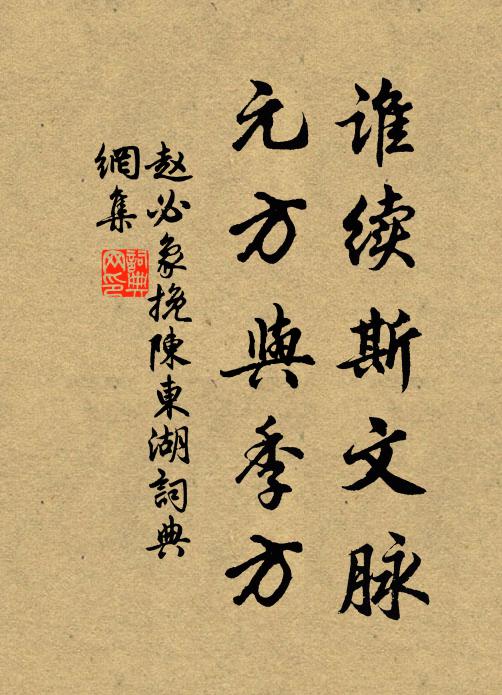 谁续斯文脉
元方與季方
赵必象挽陳東湖詞典
網集
詞典
网印